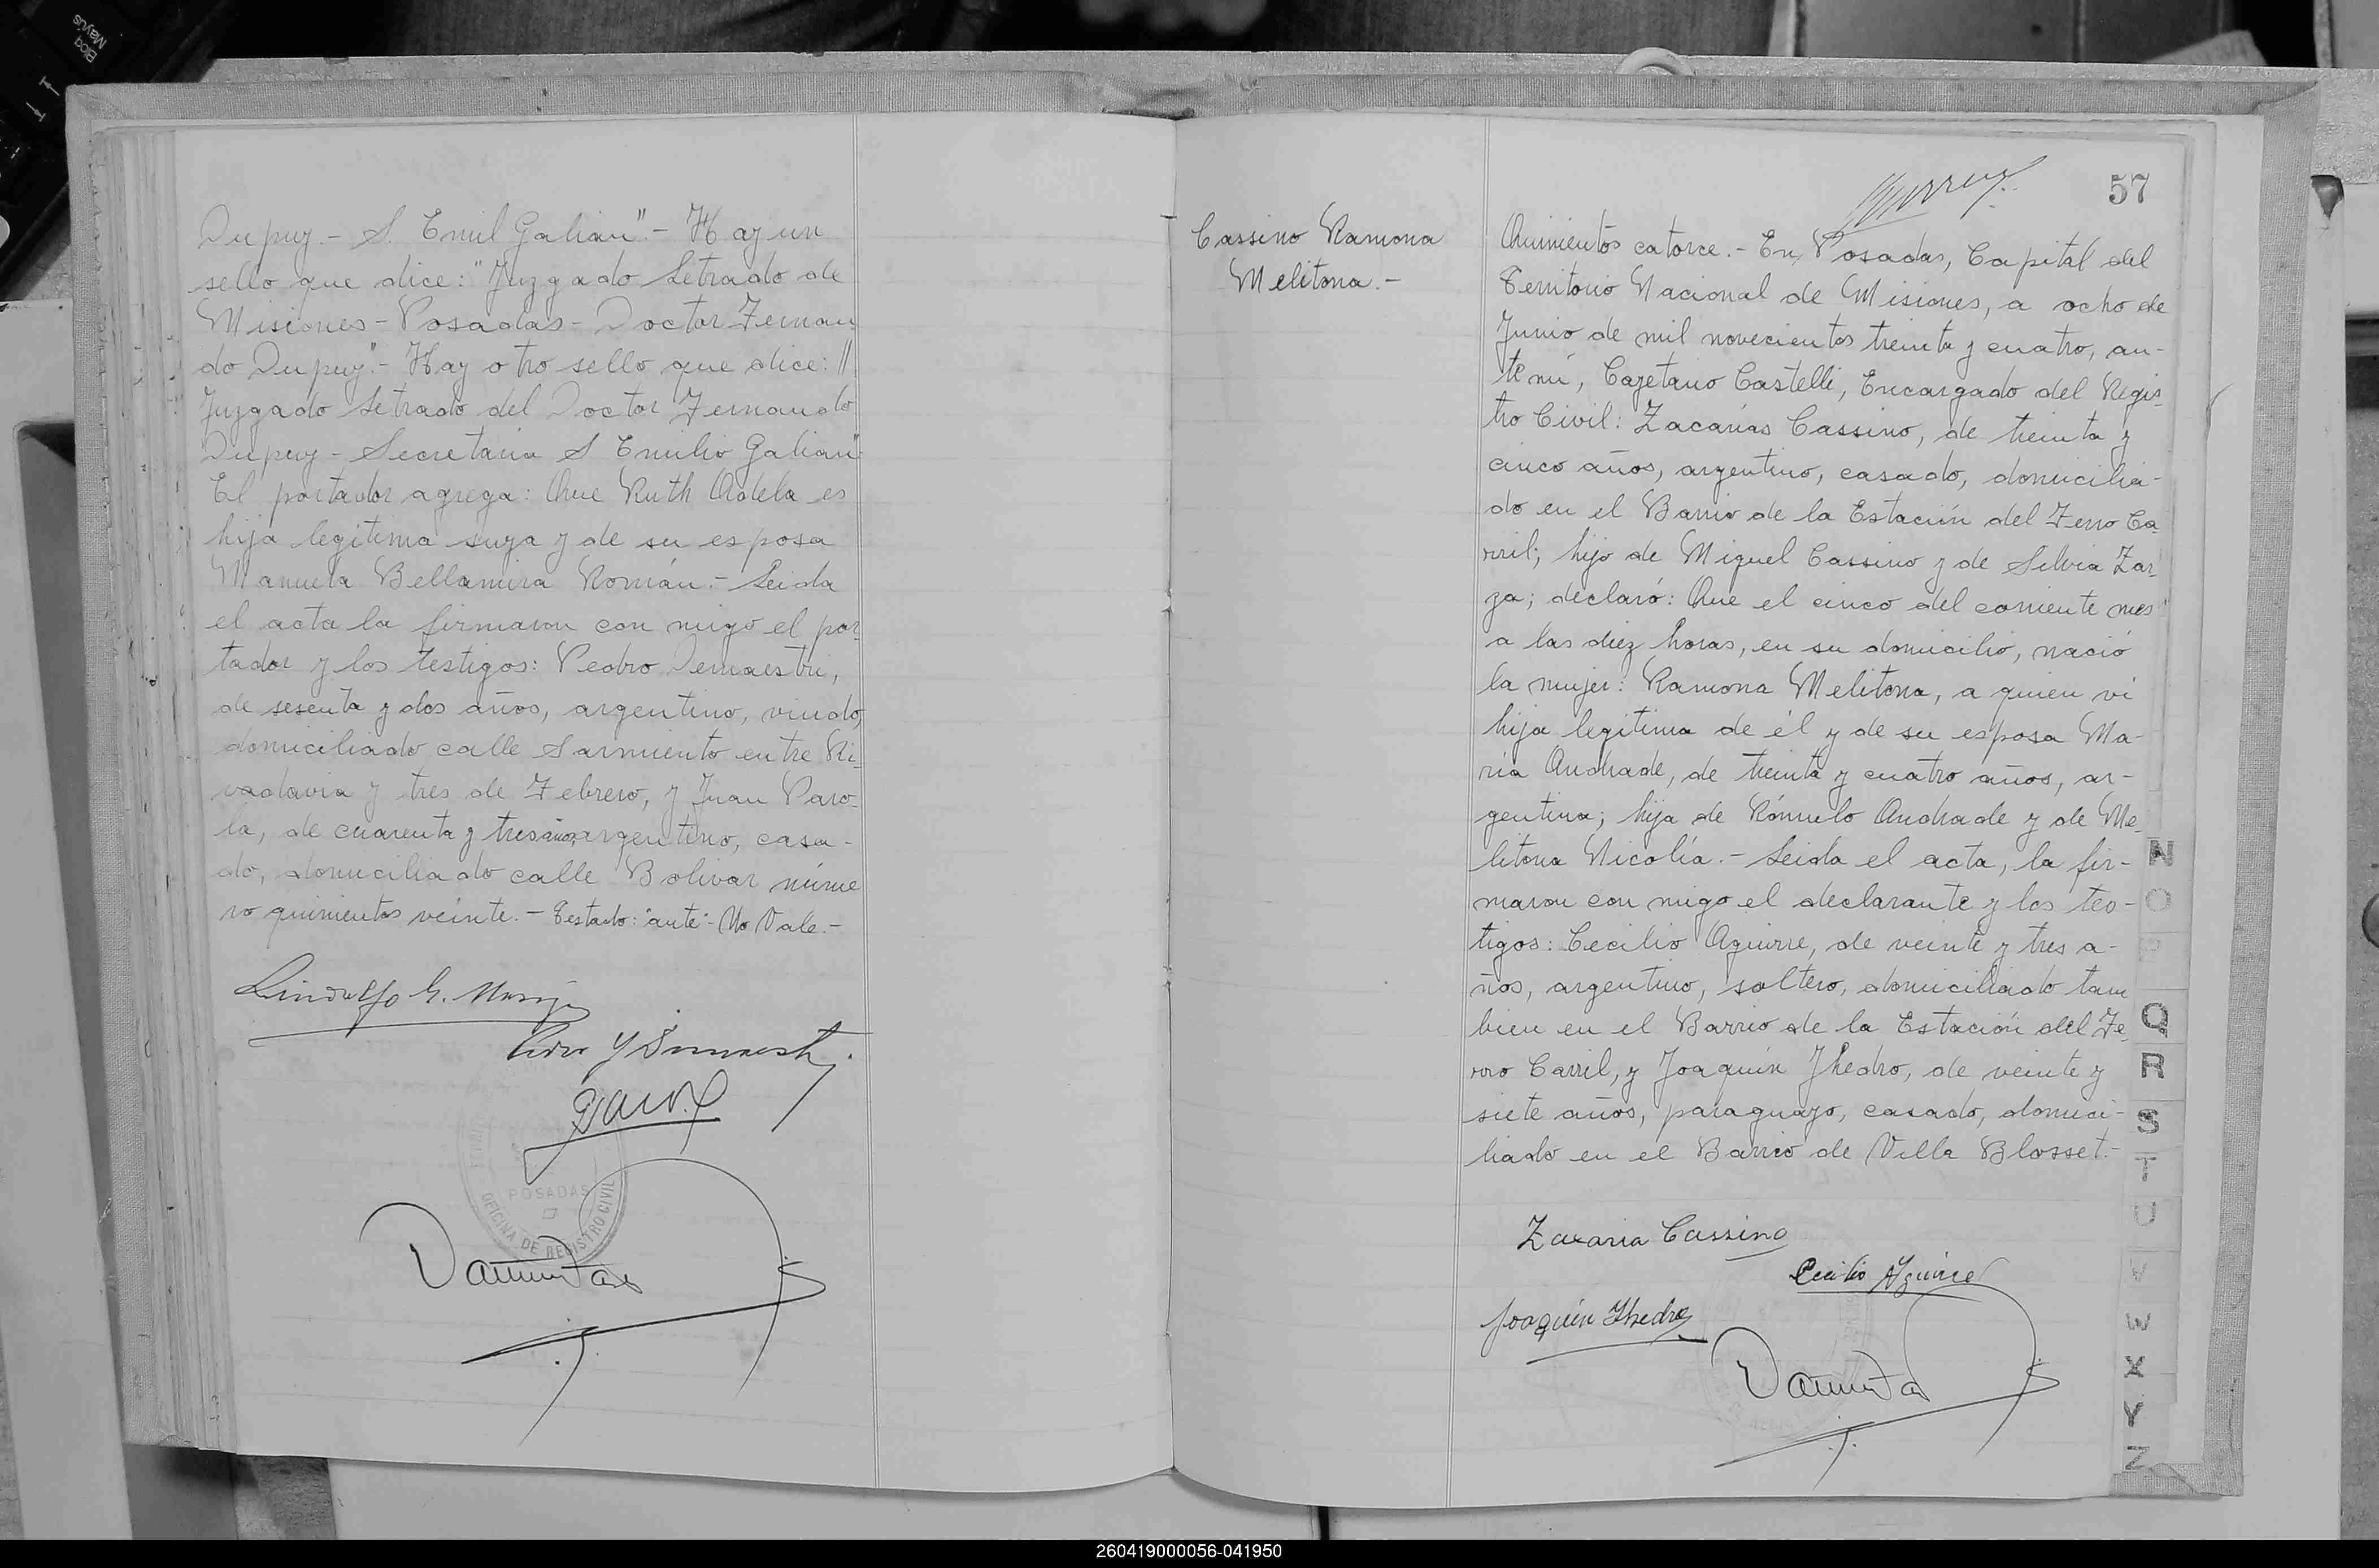 Bloq
Mayús
Dupuy.- S. Emil Galian".- Hay un
sello que dice: "Juzgado Letrado de
Misiones - Posadas - Doctor Fernan
do Dupuy".- Hay otro sello que dice: //
Juzgado Letrado del Doctor Fernando
Dupuy - Secretaria S Emilio Galian"
El portador agrega: Que Ruth Adela es
hija legítima suya y de su esposa
Manuela Bellamira Román.- Leida
el acta la firmaron con migo el por_
tador y los testigos: Pedro Demaestri,
de sesenta y dos años, argentino, viudo,
domiciliado calle Sarmiento entre Ri_
vadavia y tres de Febrero, y Juan Paro_
la, de cuarenta y tres años, argentino, casa-
do, domiciliado calle Bolivar núme
ro quinientos veinte.- Testado: "ante"- No Vale.-
Lindolfo G.
POSADAS
OFICINA DE REGISTRO CIVIL
57
Cassino Ramona
Melitona.-
Quinientos catorce.- En Posadas, Capital del
Territorio Nacional de Misiones, a ocho de
Junio de mil novecientos treinta y cuatro, an-
te mí, Cayetano Castelli, Encargado del Regis_
tro Civil: Zacarías Cassino, de treinta y
cinco años, argentino, casado, domicilia-
do en el Barrio de la Estación del Ferro Ca
rril; hijo de Miguel Cassino y de Silvia Zar_
za; declaró: Que el cinco del corriente mes
a las diez horas, en su domicilio, nació
la mujer: Ramona Melitona, a quien ví
hija legítima de él y de su esposa Ma-
ría Andrade, de treinta y cuatro años, ar-
gentina; hija de Rómulo Andrade y de Me_
litona Nicolía.- Leida el acta, la fir-
maron con migo el declarante y los tes-
tigos: Cecilio Aguirre, de veinte y tres a-
ños, argentino, soltero, domiciliado tam
bien en el Barrio de la Estación del Fe_
rro Carril, y Joaquín Jhedro, de veinte y
siete años, paraguayo, casado, domici-
liado en el Barrio de Villa Blosset.-
Zacaria Cassino
Cecilio Aguirre
Joaquín Jhedro
N
O
P
Q
R
S
T
U
V
W
X
Y
Z
260419000056-041950